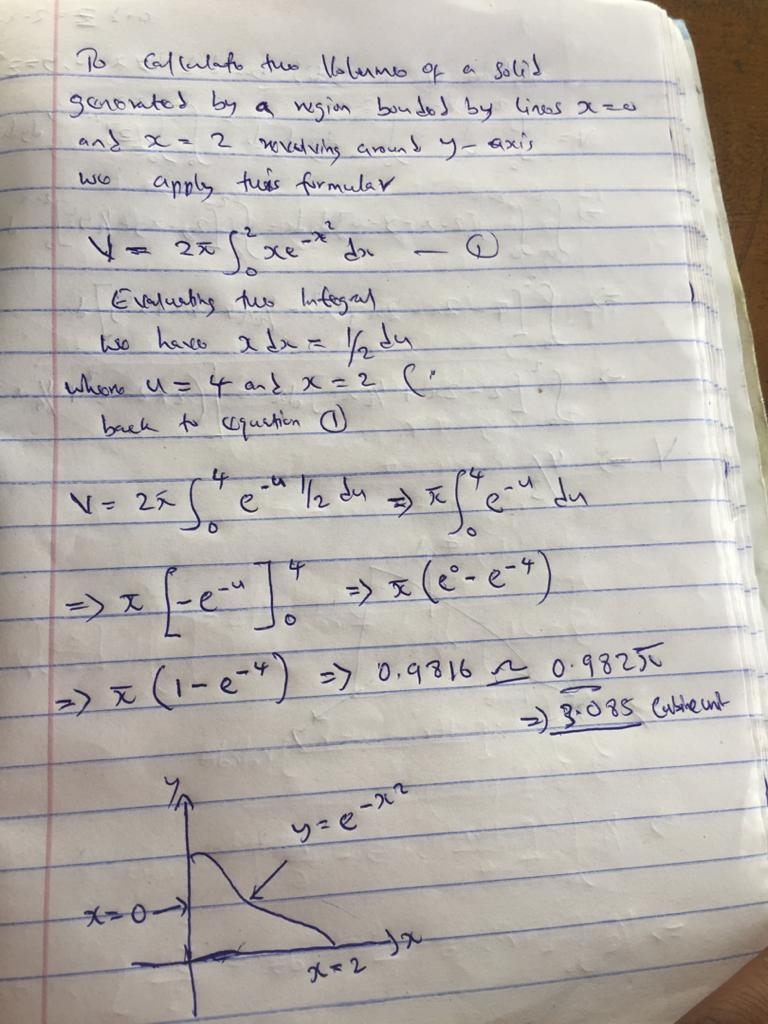 To Calculate the Volume of a solid
generated by a region bounded by lines x=0
and x = 2 revolving around y-axis
we apply this formular
V = 2π ∫₀² xe^(-x²) dx — ①
Evaluating the Integral
we have x dx = 1/2 du
where u = 4 and x = 2 (
back to equation ①
V = 2π ∫₀⁴ e^(-u) 1/2 du ⇒ π ∫₀⁴ e^(-u) du
⇒ π [-e^(-u)]₀⁴ ⇒ π (e⁰ - e^(-4))
⇒ π (1 - e^(-4)) ⇒ 0.9816 ≃ 0.982π
⇒ 3.085 Cubic unit
y
y = e^(-x²)
x = 0 →
x
x = 2